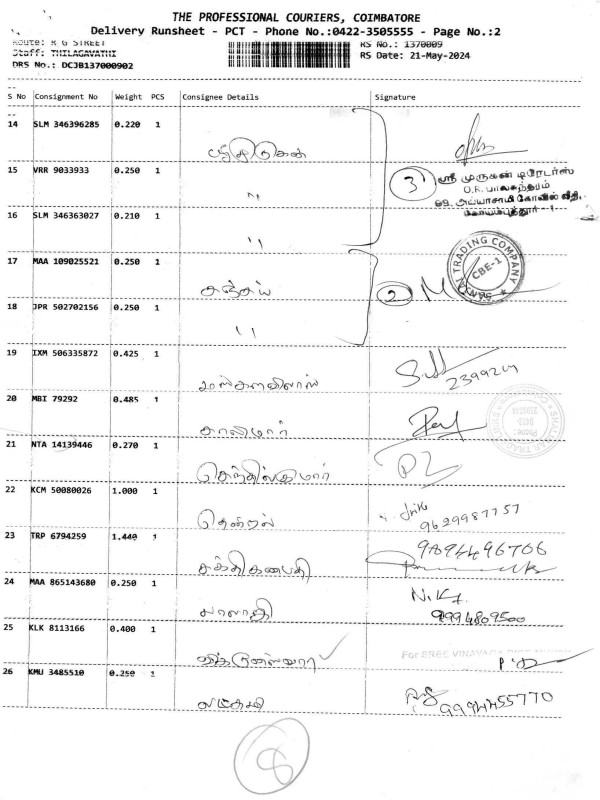 THE PROFESSIONAL COURIERS, COIMBATORE
Delivery Runsheet - PCT - Phone No.:0422-3505555 - Page No.:2
Route: R G STREET
Staff: THILAGAVATHI
DRS No.: DCJB137000902
RS No.: 1370009
RS Date: 21-May-2024
S No Consignment No Weight PCS Consignee Details Signature
14 SLM 346396285 0.220 1
15 VRR 9033933 0.250 1 "
3
ஸ்ரீ முருகன் டிரேடர்ஸ்
O.R. பாலசுந்தரம்
16 SLM 346363027 0.210 1 "
17 MAA 109025521 0.250 1 சஞ்சய்
2
TRADING COMPANY
CBE-1
18 JPR 502702156 0.250 1 "
19 IXM 506335872 0.425 1
2399201
20 MBI 79292 0.485 1 சாலிமார்
21 NTA 14139446 0.270 1 செந்தில்குமார்
22 KCM 50080026 1.000 1 தென்றல்
9629987757
23 TRP 6794259 1.440 1 சக்திகணபதி
9894496706
24 MAA 865143680 0.250 1 பாலாஜி
9994809500
25 KLK 8113166 0.400 1
For SREE VINAYAGA
26 KMU 3485510 0.250 1
9994455770
8